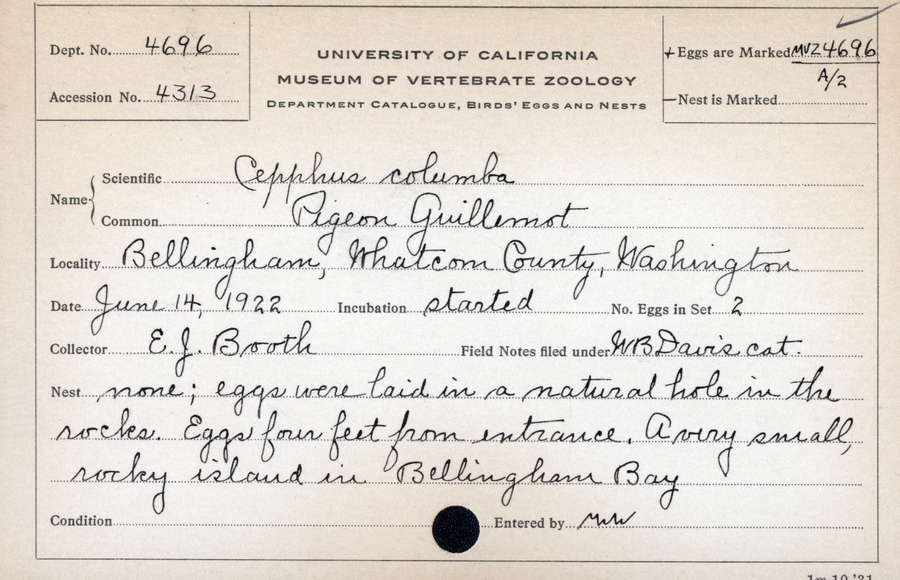 Dept. No. 4696
Accession No. 4313
UNIVERSITY OF CALIFORNIA
MUSEUM OF VERTEBRATE ZOOLOGY
DEPARTMENT CATALOGUE, BIRDS' EGGS AND NESTS
+ Eggs are Marked MVZ 4696
A/2
— Nest is Marked
Name
Scientific Cepphus columba
Common Pigeon Guillemot
Locality Bellingham, Whatcom County, Washington
Date June 14, 1922 Incubation started No. Eggs in Set 2
Collector E. J. Booth Field Notes filed under WB Davis cat.
Nest none; eggs were laid in a natural hole in the
rocks. Eggs four feet from entrance. A very small,
rocky island in Bellingham Bay
Condition Entered by
1m 10 '31